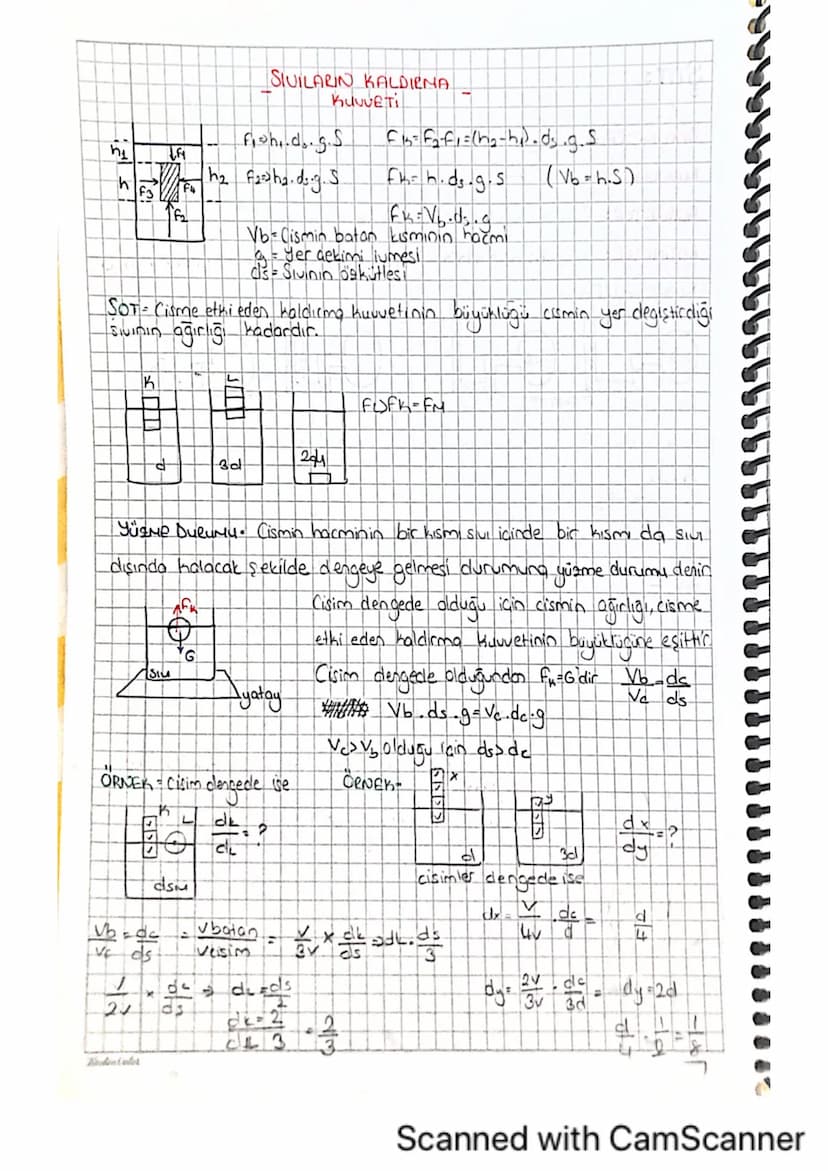 SIVILARIN KALDIRMA
KUVVETİ
F1⇒h1.ds.g.S Fk=F2-F1=(h2-h1).ds.g.S
h1 F1
h F3 F4 h2 F2⇒h2.ds.g.S Fk=h.ds.g.S (Vb=h.S)
F2 Fk=Vb.ds.g
Vb=Cismin batan kısmının hacmi
g=Yer çekimi ivmesi
ds=Sıvının özkütlesi
SOT= Cisme etki eden kaldırma kuvvetinin büyüklüğü cismin yer değiştirdiği
sıvının ağırlığı kadardır.
K L
d 3d 2d M
YÜZME DURUMU= Cismin hacminin bir kısmı sıvı içinde bir kısmı da sıvı
dışında kalacak şekilde dengeye gelmesi durumuna yüzme durumu denir.
Fk Cisim dengede olduğu için cismin ağırlığı, cisme
G etki eden kaldırma kuvvetinin büyüklüğüne eşittir.
sıvı Cisim dengede olduğundan Fk=G'dir Vb/Vc=dc/ds
yatay Vb.ds.g=Vc.dc.g
Vc>Vb olduğu için ds>dc
ÖRNEK= Cisim dengede ise ÖRNEK=
K L dk/dL=? x y dx/dy=?
dsıvı d 3d
cisimler dengede ise
Vb/Vc=dc/ds = Vbatan/Vcisim = V/3V x dk/ds ⇒dL.ds/3 dx=V/4V.dc/d= d/4
1/2V x dc/ds ⇒ dL=ds/2 dy=2V/3V.dc/3d= dy=2d
2/3 d/4.1/2=1/8
Scanned with CamScanner